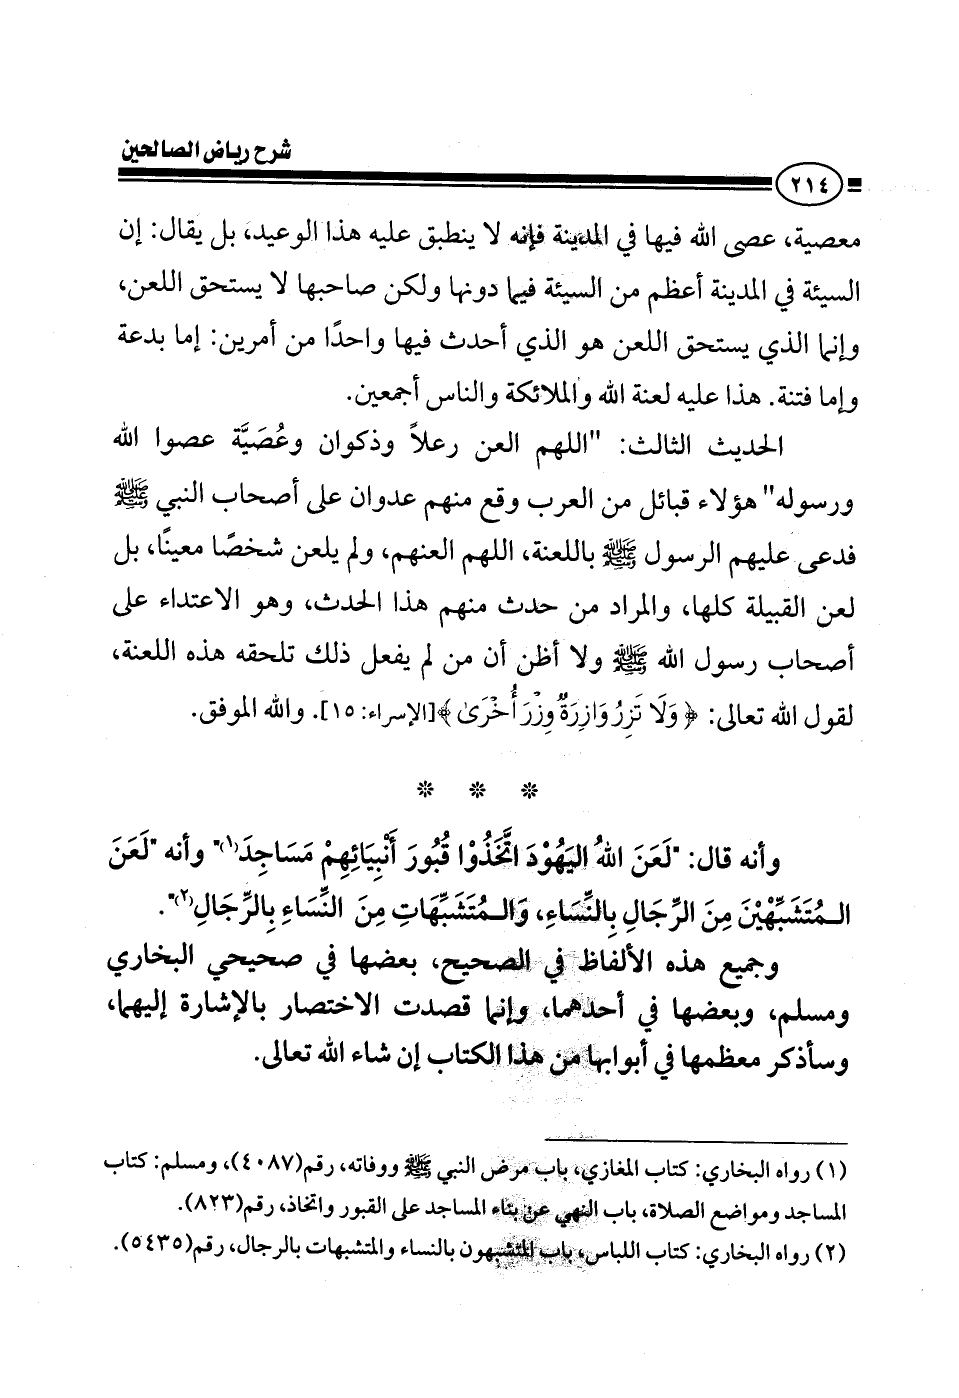 شرح رياض الصالحين
٢١٤
معصية، عصى الله فيها في المدينة فإنه لا ينطبق عليه هذا الوعيد، بل يقال: إن
السيئة في المدينة أعظم من السيئة فيما دونها ولكن صاحبها لا يستحق اللعن،
وإنما الذي يستحق اللعن هو الذي أحدث فيها واحدًا من أمرين: إما بدعة
وإما فتنة. هذا عليه لعنة الله والملائكة والناس أجمعين.
الحديث الثالث: "اللهم العن رعلاً وذكوان وعُصَيَّة عصوا الله
ورسوله" هؤلاء قبائل من العرب وقع منهم عدوان على أصحاب النبي ﷺ
فدعى عليهم الرسول ﷺ باللعنة، اللهم العنهم، ولم يلعن شخصًا معينًا، بل
لعن القبيلة كلها، والمراد من حدث منهم هذا الحدث، وهو الاعتداء على
أصحاب رسول الله ﷺ ولا أظن أن من لم يفعل ذلك تلحقه هذه اللعنة،
لقول الله تعالى: ﴿ وَلَا تَزِرُ وَازِرَةٌ وِزْرَ أُخْرَىٰ ﴾[الإسراء: ١٥]. والله الموفق.
* * *
وأنه قال: "لَعَنَ اللهُ اليَهُودَ اتَّخَذُوا قُبُورَ أَنْبِيَائِهِمْ مَسَاجِدَ(١)" وأنه "لَعَنَ
المُتَشَبِّهْيْنَ مِنَ الرِّجَالِ بِالنِّسَاءِ، وَالمُتَشَبِّهَاتِ مِنَ النِّسَاءِ بِالرِّجَالِ(٢)".
وجميع هذه الألفاظ في الصحيح، بعضها في صحيحي البخاري
ومسلم، وبعضها في أحدهما، وإنما قصدت الاختصار بالإشارة إليهما،
وسأذكر معظمها في أبوابها من هذا الكتاب إن شاء الله تعالى.
(١) رواه البخاري: كتاب المغازي، باب مرض النبي ﷺ ووفاته، رقم(٤٠٨٧)، ومسلم: كتاب
المساجد ومواضع الصلاة، باب النهي عن بناء المساجد على القبور واتخاذ، رقم(٨٢٣).
(٢) رواه البخاري: كتاب اللباس، باب المتشبهون بالنساء والمتشبهات بالرجال، رقم(٥٤٣٥).